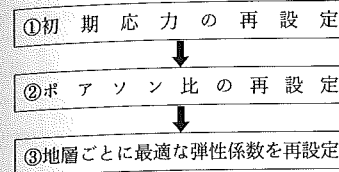 ①初期応力の再設定
②ポアソン比の再設定
③地層ごとに最適な弾性係数を再設定